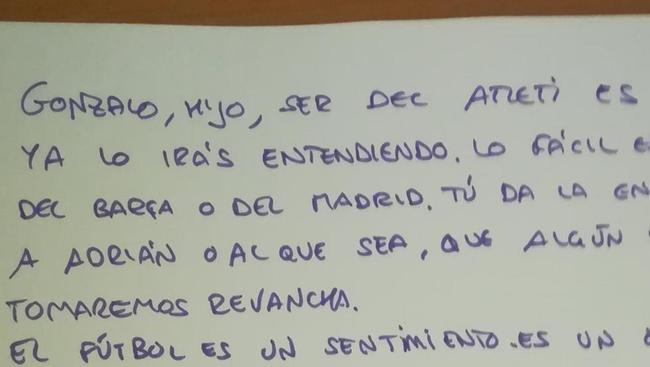 GONZALO, HIJO, SER DEL ATLETI ES
YA LO IRÁS ENTENDIENDO. LO FÁCIL E
DEL BARÇA O DEL MADRID. TÚ DA LA EN
A ADRIÁN O AL QUE SEA, QUE ALGÚN
TOMAREMOS REVANCHA.
EL FÚTBOL ES UN SENTIMIENTO. ES UN